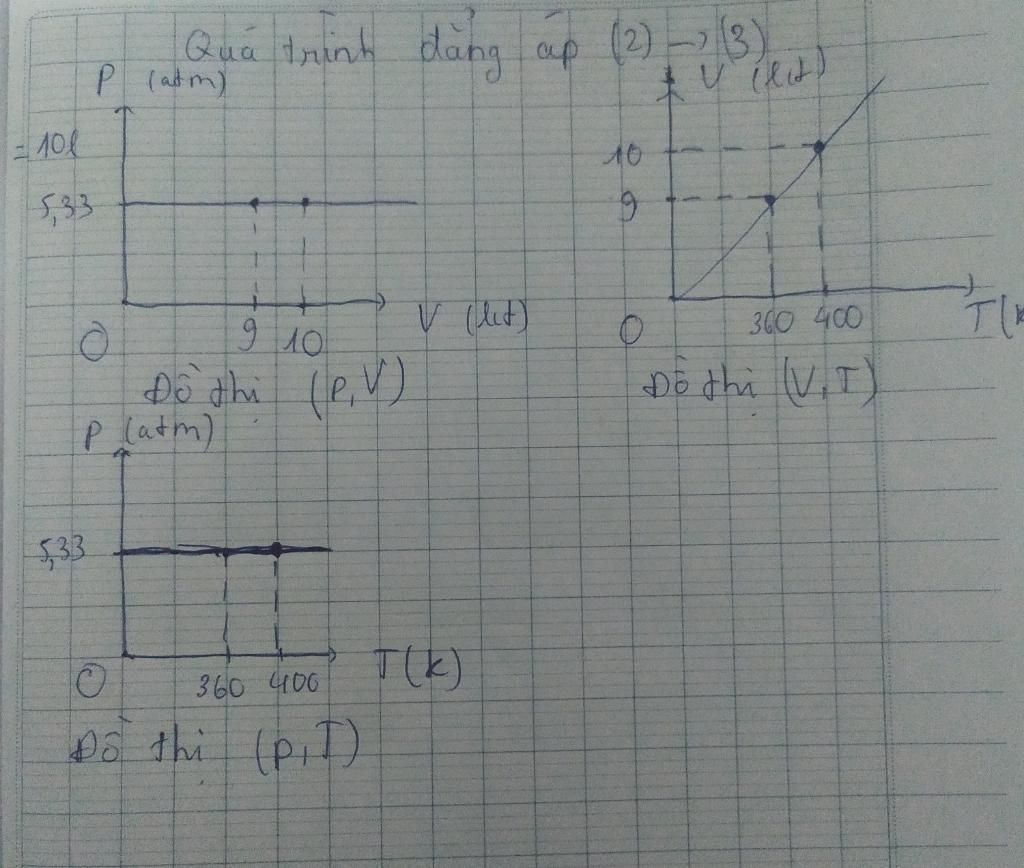 Quá trình đẳng áp (2) → (3)
P (atm)
= 10l
5,33
O
9 10
V (lít)
Đồ thị (p,V)
V (lít)
10
9
O
360 400
T(K
Đồ thị (V,T)
P (atm)
5,33
O
360 400
T(K)
Đồ thị (p,T)